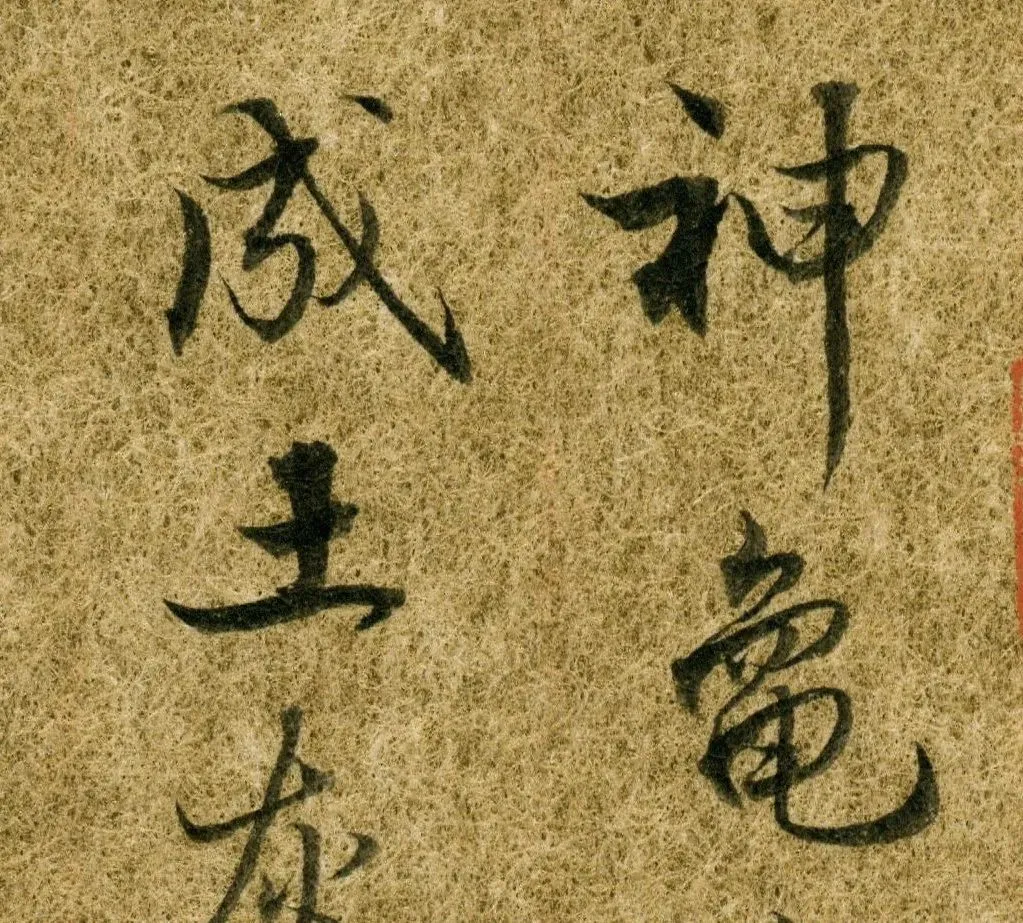 神龜
成土灰